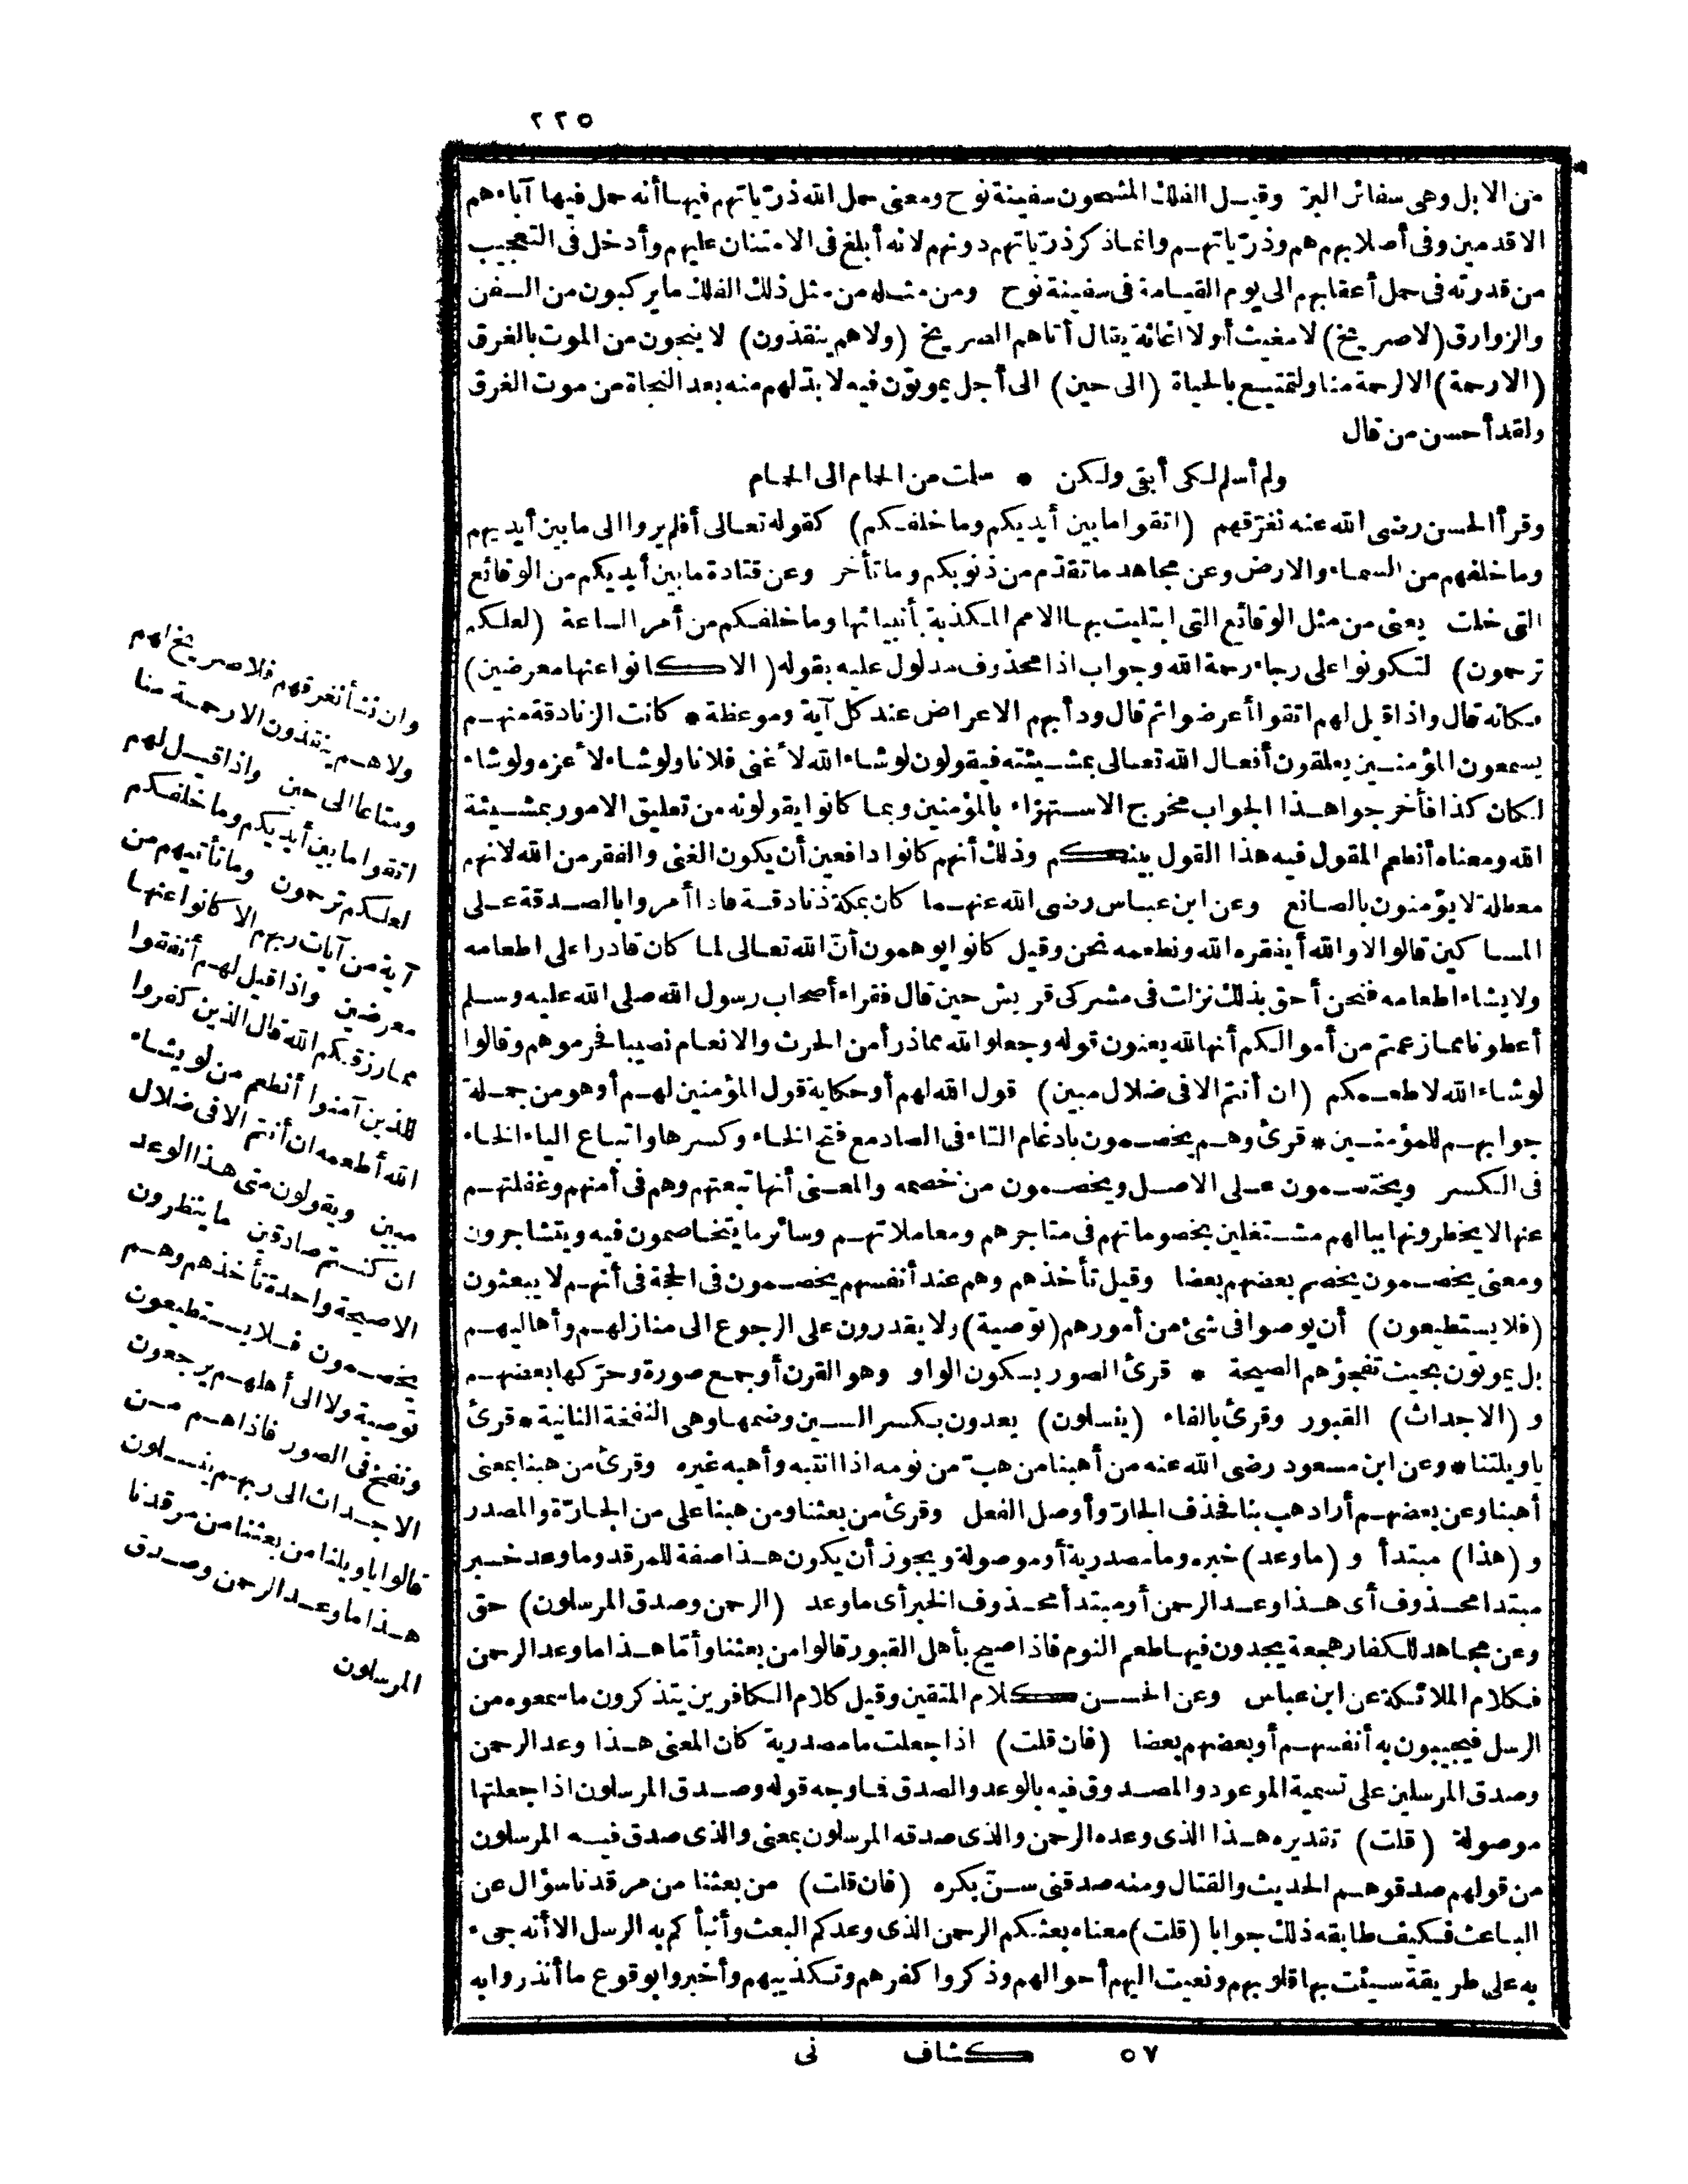 ٢٢٥
من الابل وهى سفائن البرّ وقيل الفلك المشحون سفينة نوح ومعنى حمل الله ذرّياتهم فيها أنه حمل فيها آباءهم
الاقدمين وفى أصلابهم هم وذرّياتهم وانما ذكر ذرّياتهم دونهم لانه أبلغ فى الامتنان عليهم وأدخل فى التعجيب
من قدرته فى حمل أعقابهم الى يوم القيامة فى سفينة نوح ومن مثله من مثل ذلك الفلك ما يركبون من السفن
والزوارق (لا صريخ) لا مغيث أو لا اغاثة يقال أتاهم الصريخ (ولا هم ينقذون) لا ينجون من الموت بالغرق
(الا رحمة) الا لرحمة منا ولتمتيع بالحياة (الى حين) الى أجل يموتون فيه لا بدّ لهم منه بعد النجاة من موت الغرق
ولقد أحسن من قال
ولم أسلم لكى أبقى ولكن * سلمت من الحمام الى الحمام
وقرأ الحسن رضى الله عنه نغرّقهم (اتقوا ما بين أيديكم وما خلفكم) كقوله تعالى أفلم يروا الى ما بين أيديهم
وما خلفهم من السماء والارض وعن مجاهد ما تقدّم من ذنوبكم وما تأخر وعن قتادة ما بين أيديكم من الوقائع
التى خلت يعنى من مثل الوقائع التى ابتليت بها الامم المكذبة بأنبيائها وما خلفكم من أمر الساعة (لعلكم
ترحمون) لتكونوا على رجاء رحمة الله وجواب اذا محذوف مدلول عليه بقوله (الا كانوا عنها معرضين)
فكانه قال واذا قيل لهم اتقوا أعرضوا ثم قال ودأبهم الاعراض عند كل آية وموعظة * كانت الزنادقة منهم
يسمعون المؤمنين يعلقون أفعال الله تعالى بمشيئته فيقولون لو شاء الله لأغنى فلانا ولو شاء لأعزه ولو شاء
لكان كذا فأخرجوا هذا الجواب مخرج الاستهزاء بالمؤمنين وبما كانوا يقولونه من تعليق الامور بمشيئة
الله ومعناه أنطعم المقول فيه هذا القول بينكم وذلك أنهم كانوا دافعين أن يكون الغنى والفقر من الله لانهم
معطلة لا يؤمنون بالصانع وعن ابن عباس رضى الله عنهما كان بمكة زنادقة فاذا أمروا بالصدقة على
المساكين قالوا لا والله أيفقره الله ونطعمه نحن وقيل كانوا يوهمون أنّ الله تعالى لما كان قادرا على اطعامه
ولا يشاء اطعامه فنحن أحق بذلك نزلت فى مشركى قريش حين قال فقراء أصحاب رسول الله صلى الله عليه وسلم
أعطونا مما زعمتم من أموالكم أنها لله يعنون قوله وجعلوا لله مما ذرأ من الحرث والانعام نصيبا فحرموهم وقالوا
لو شاء الله لاطعمكم (ان أنتم الا فى ضلال مبين) قول الله لهم أو حكاية قول المؤمنين لهم أو هو من جملة
جوابهم للمؤمنين * قرئ وهم يخصمون بادغام التاء فى الصاد مع فتح الخاء وكسرها واتباع الياء الخاء
فى الكسر ويختصمون على الاصل ويخصمون من خصمه والمعنى أنها تبغتهم وهم فى أمنهم وغفلتهم
عنها لا يخطرونها ببالهم مشتغلين بخصوماتهم فى متاجرهم ومعاملاتهم وسائر ما يتخاصمون فيه ويتشاجرون
ومعنى يخصمون يخصم بعضهم بعضا وقيل تأخذهم وهم عند أنفسهم يخصمون فى الحجة فى أنهم لا يبعثون
(فلا يستطيعون) أن يوصوا فى شئ من أمورهم (توصية) ولا يقدرون على الرجوع الى منازلهم وأهاليهم
بل يموتون بحيث تفجؤهم الصيحة * قرئ الصور بسكون الواو وهو القرن أو جمع صورة وحرّكها بعضهم
و (الاجداث) القبور وقرئ بالفاء (ينسلون) يعدون بكسر السين وضمها وهى النفخة الثانية * قرئ
يا ويلتنا * وعن ابن مسعود رضى الله عنه من أهبنا من هبّ من نومه اذا انتبه وأهبه غيره وقرئ من هبنا بمعنى
أهبنا وعن بعضهم أراد هب بنا فحذف الجارّ وأوصل الفعل وقرئ من بعثنا ومن هبنا على من الجارّة والمصدر
و (هذا) مبتدأ و (ما وعد) خبره وما مصدرية أو موصولة ويجوز أن يكون هذا صفة للمرقد وما وعد خبر
مبتدا محذوف أى هذا وعد الرحمن أو مبتدأ محذوف الخبر أى ما وعد (الرحمن وصدق المرسلون) حق
وعن مجاهد للكفار هجعة يجدون فيها طعم النوم فاذا صيح بأهل القبور قالوا من بعثنا وأمّا هذا ما وعد الرحمن
فكلام الملائكة عن ابن عباس وعن الحسن كلام المتقين وقيل كلام الكافرين يتذكرون ما سمعوه من
الرسل فيجيبون به أنفسهم أو بعضهم بعضا (فان قلت) اذا جعلت ما مصدرية كان المعنى هذا وعد الرحمن
وصدق المرسلين على تسمية الموعود والمصدوق فيه بالوعد والصدق فما وجه قوله وصدق المرسلون اذا جعلتها
موصولة (قلت) تقديره هذا الذى وعده الرحمن والذى صدقه المرسلون بمعنى والذى صدق فيه المرسلون
من قولهم صدقوهم الحديث والقتال ومنه صدقنى سنّ بكره (فان قلت) من بعثنا من مرقدنا سؤال عن
الباعث فكيف طابقه ذلك جوابا (قلت) معناه بعثكم الرحمن الذى وعدكم البعث وأنبأكم به الرسل الا أنه جىء
به على طريقة سيئت بها قلوبهم ونعيت اليهم أحوالهم وذكروا كفرهم وتكذيبهم وأخبروا بوقوع ما أنذروا به
وان نشأ نغرقهم فلا صريخ لهم
ولا هم ينقذون الا رحمة منا
ومتاعا الى حين واذا قيل لهم
اتقوا ما بين أيديكم وما خلفكم
لعلكم ترحمون وما تأتيهم من
آية من آيات ربهم الا كانوا عنها
معرضين واذا قيل لهم أنفقوا
مما رزقكم الله قال الذين كفروا
للذين آمنوا أنطعم من لو يشاء
الله أطعمه ان أنتم الا فى ضلال
مبين ويقولون متى هذا الوعد
ان كنتم صادقين ما ينظرون
الا صيحة واحدة تأخذهم وهم
يخصمون فلا يستطيعون
توصية ولا الى أهلهم يرجعون
ونفخ فى الصور فاذا هم من
الاجداث الى ربهم ينسلون
قالوا يا ويلنا من بعثنا من مرقدنا
هذا ما وعد الرحمن وصدق
المرسلون
٥٧ كشاف نى